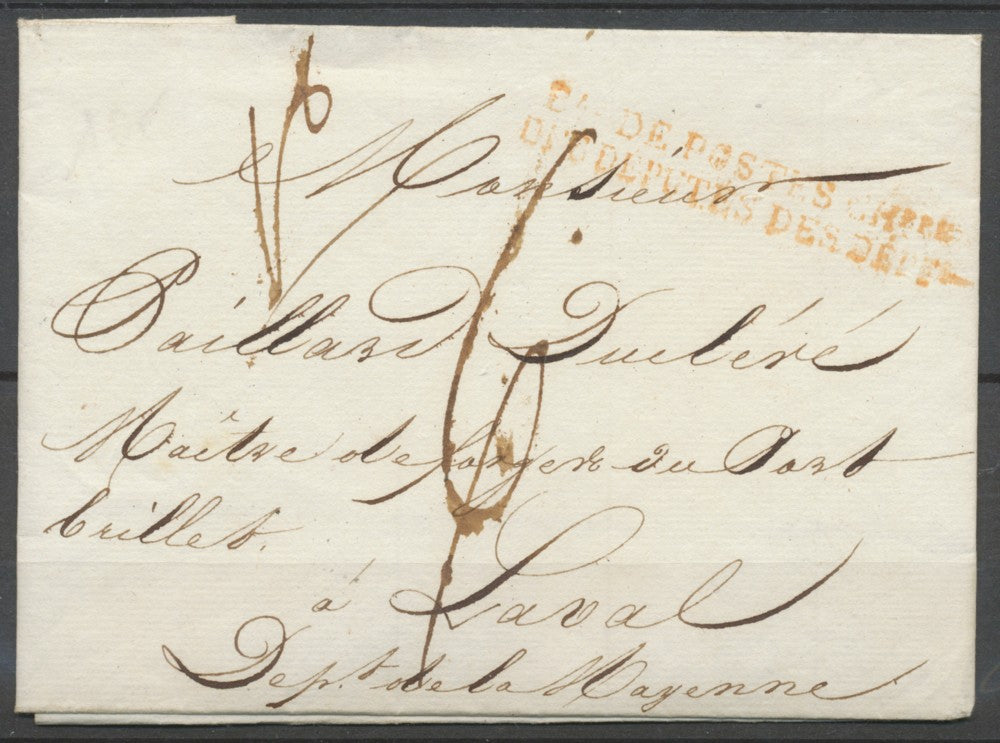 Bau DE POSTES CHbre
DES DEPUTES DES DÉPts
Monsieur
Paillard Ducléré
Maître de forges du Port
brillet.
à Laval
Dept. de la Mayenne